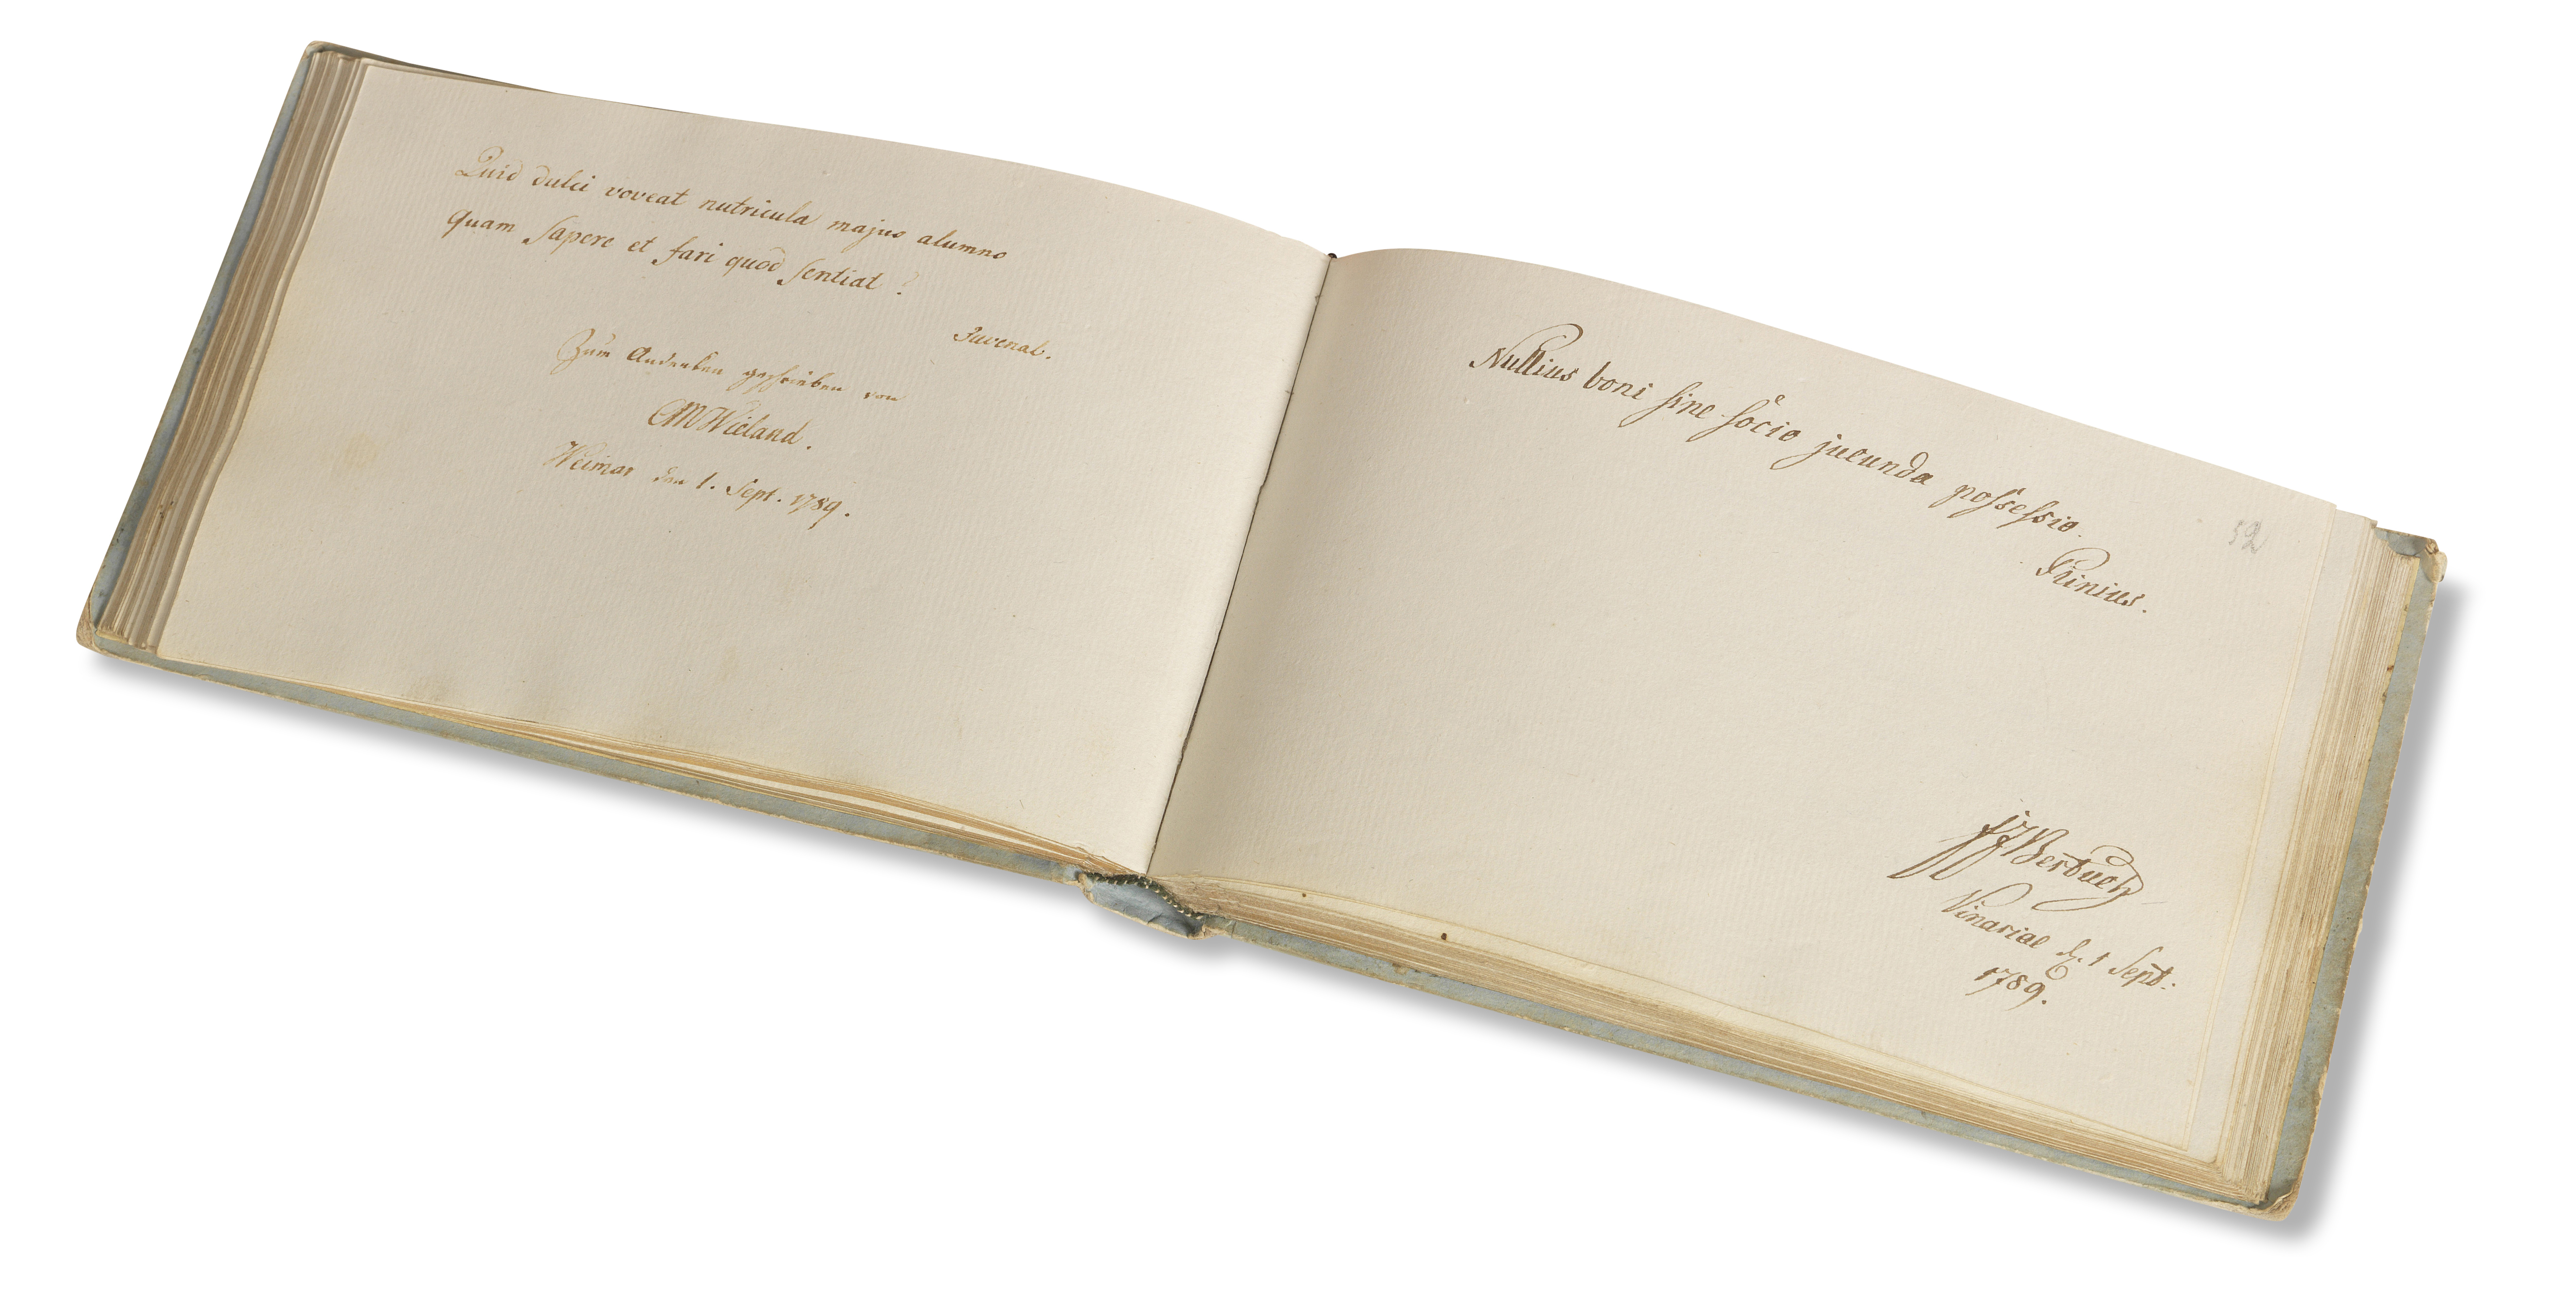 Quid dulci voveat nutricula majus alumno
quam sapere et fari quod sentiat?
Juvenal.
Zum Andenken geschrieben von
CMWieland.
Weimar den 1. Sept. 1789.
Nullius boni sine socio jucunda possessio.
Plinius.
52
FJBertuch
Vinariae d. 1 Sept:
1789.